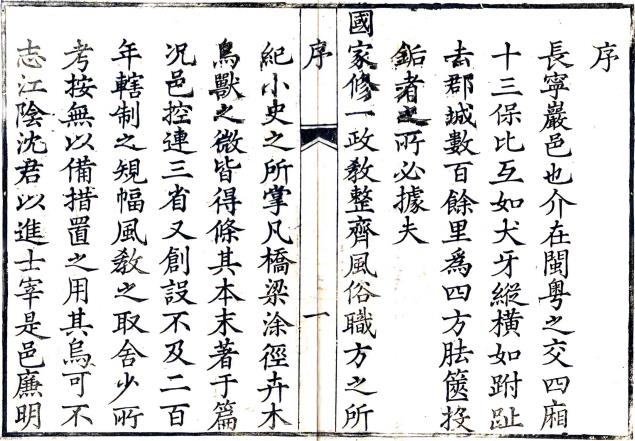 序
長寧巖邑也介在閩粤之交四廂
十三保比互如犬牙縱橫如跗趾
去郡城數百餘里爲四方胠篋投
銗者之所必據夫
國家修一政敎整齊風俗職方之所
序
一
紀小史之所掌凡橋梁涂徑卉木
鳥獸之微皆得條其本末著于篇
况邑控連三省又創設不及二百
年轄制之䂓幅風敎之取舍少所
考按無以備措置之用其烏可不
志江陰沈君以進士宰是邑廉明